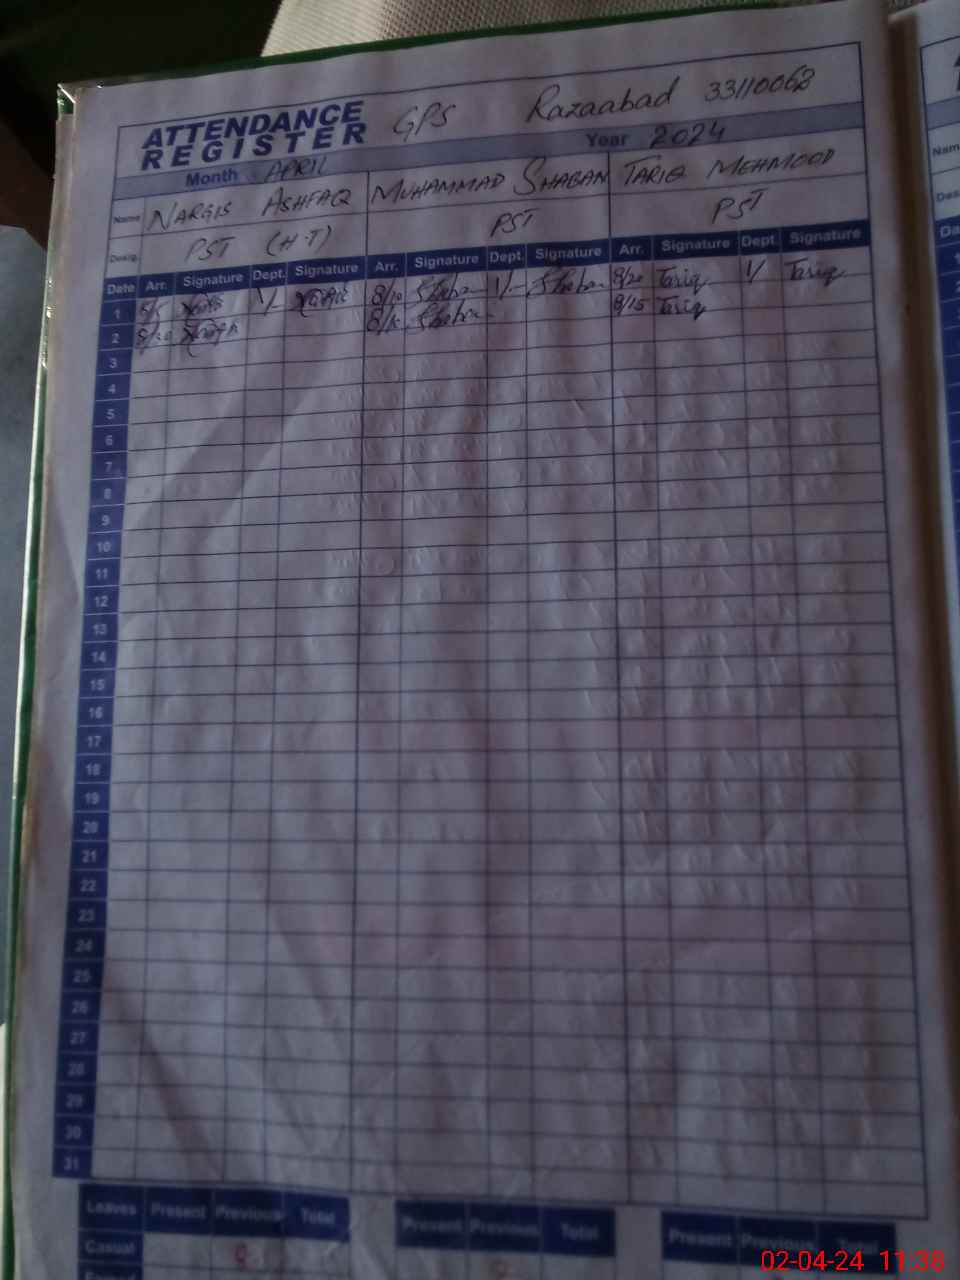 ATTENDANCE REGISTER GPS Razaabad 33110062
Month APRIL Year 2024
Name NARGIS ASHFAQ MUHAMMAD SHABAN TARIQ MEHMOOD
Desig. PST (H.T) PST PST
Date Arr. Signature Dept. Signature Arr. Signature Dept. Signature Arr. Signature Dept. Signature
1 1/- 8/10 Shaban 1/- Shaban 8/20 Tariq 1/ Tariq
2 8/15 Shaban 8/15 Tariq
3
4
5
6
7
8
9
10
11
12
13
14
15
16
17
18
19
20
21
22
23
24
25
26
27
28
29
30
31
Leaves Present Previous Total Present Previous Total Present Previous Total
Casual
02-04-24 11:38